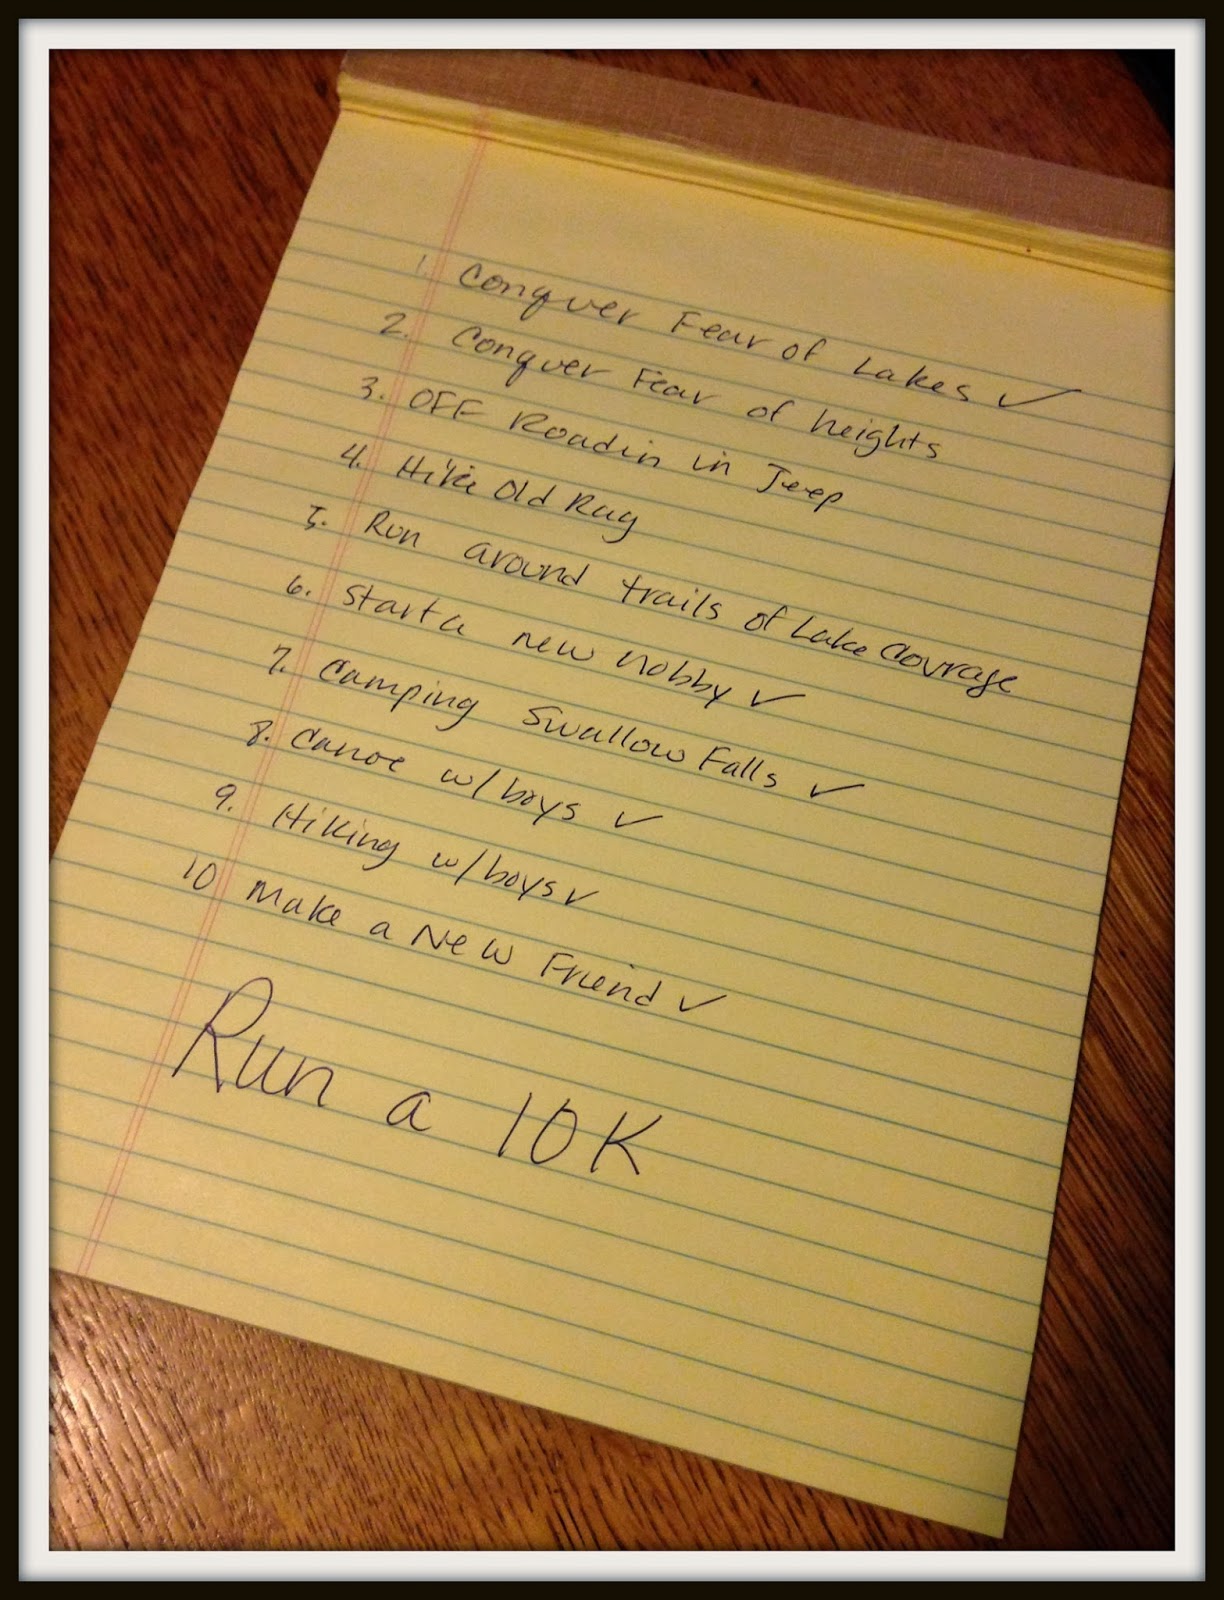 1. Conquer Fear of Lakes ✓
2. Conquer Fear of heights
3. OFF Roadin in Jeep
4. Hike Old Rag
5. Run around trails of Lake Courage
6. Start a new hobby ✓
7. Camping Swallow Falls ✓
8. Canoe w/boys ✓
9. Hiking w/boys ✓
10 Make a New Friend ✓
Run a 10K